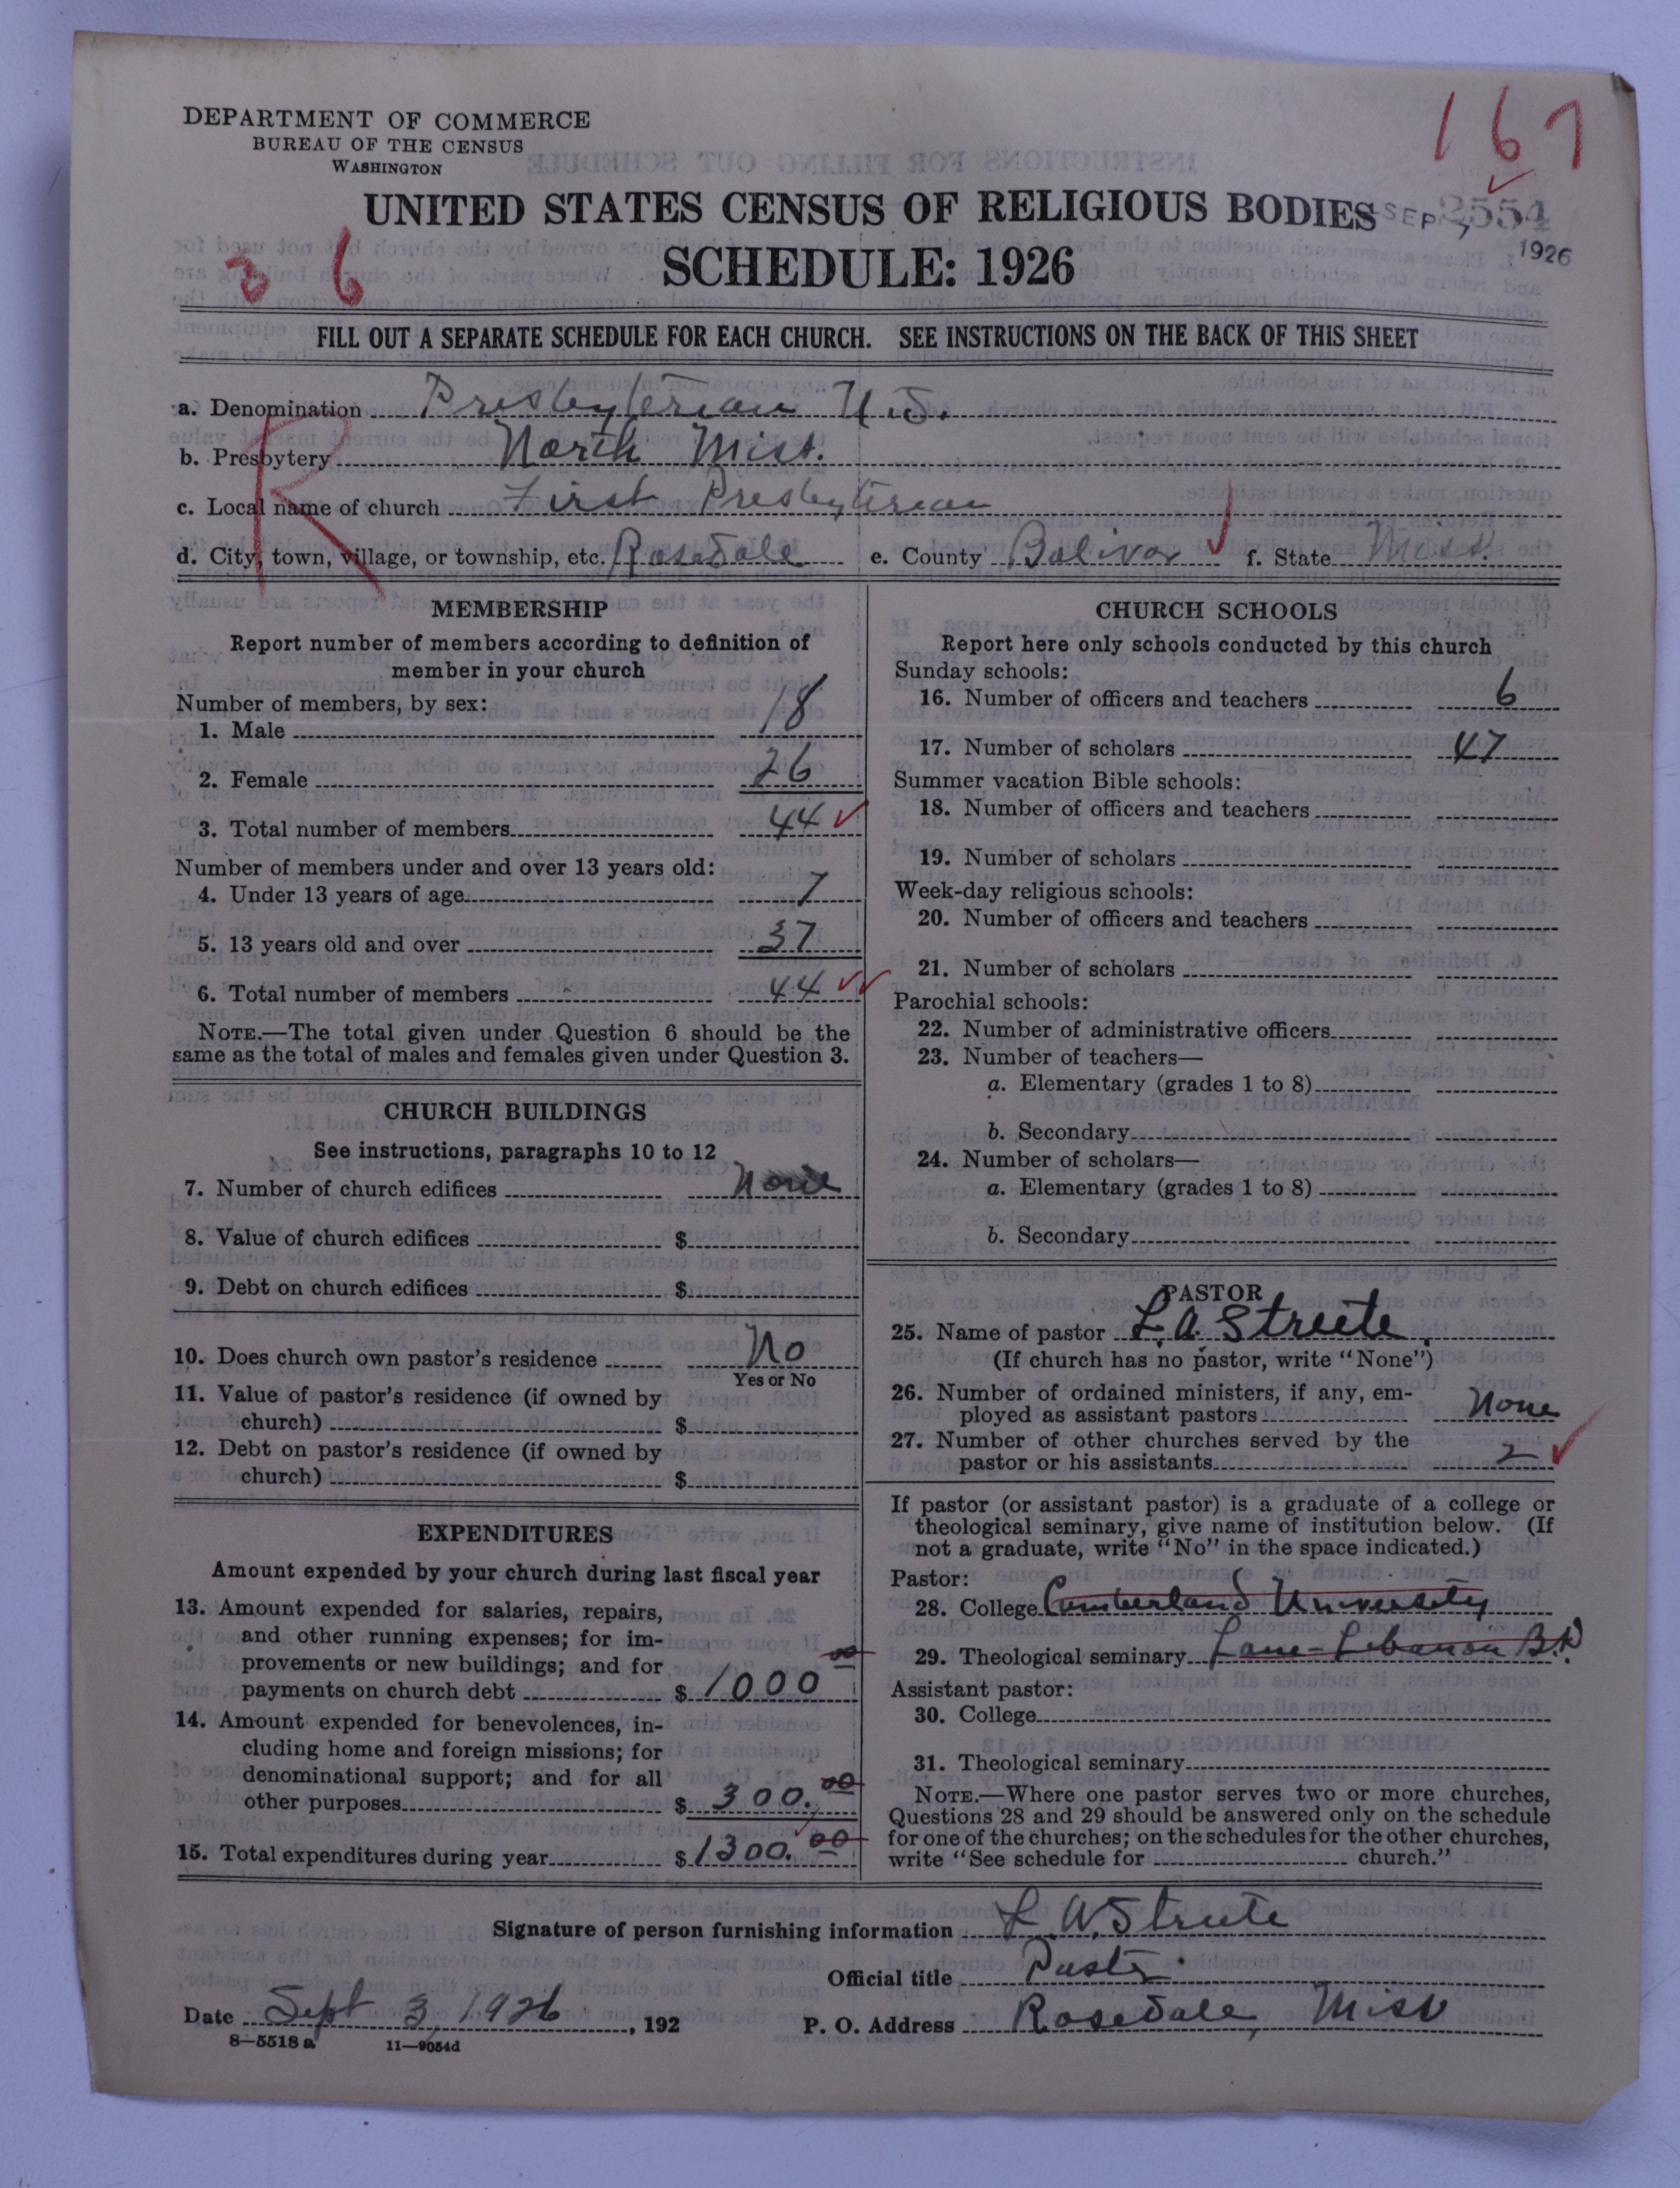 DEPARTMENT OF COMMERCE
BUREAU OF THE CENSUS
WASHINGTON
167
UNITED STATES CENSUS OF RELIGIOUS BODIES
SEP 7 1926
2554
SCHEDULE: 1926
36
FILL OUT A SEPARATE SCHEDULE FOR EACH CHURCH. SEE INSTRUCTIONS ON THE BACK OF THIS SHEET
R
a. Denomination Presbyterian U.S.
b. Presbytery North Miss.
c. Local name of church First Presbyterian
d. City, town, village, or township, etc. Rosedale e. County Bolivar f. State Miss.
MEMBERSHIP
Report number of members according to definition of
member in your church
Number of members, by sex:
1. Male 18
2. Female 26
3. Total number of members 44
Number of members under and over 13 years old:
4. Under 13 years of age 7
5. 13 years old and over 37
6. Total number of members 44
NOTE.—The total given under Question 6 should be the
same as the total of males and females given under Question 3.
CHURCH BUILDINGS
See instructions, paragraphs 10 to 12
7. Number of church edifices None
8. Value of church edifices $
9. Debt on church edifices $
10. Does church own pastor's residence No
Yes or No
11. Value of pastor's residence (if owned by
church) $
12. Debt on pastor's residence (if owned by
church) $
EXPENDITURES
Amount expended by your church during last fiscal year
13. Amount expended for salaries, repairs,
and other running expenses; for im-
provements or new buildings; and for
payments on church debt $ 1000 00
14. Amount expended for benevolences, in-
cluding home and foreign missions; for
denominational support; and for all
other purposes $ 300.00
15. Total expenditures during year $ 1300.00
CHURCH SCHOOLS
Report here only schools conducted by this church
Sunday schools:
16. Number of officers and teachers 6
17. Number of scholars 47
Summer vacation Bible schools:
18. Number of officers and teachers
19. Number of scholars
Week-day religious schools:
20. Number of officers and teachers
21. Number of scholars
Parochial schools:
22. Number of administrative officers
23. Number of teachers—
a. Elementary (grades 1 to 8)
b. Secondary
24. Number of scholars—
a. Elementary (grades 1 to 8)
b. Secondary
PASTOR
25. Name of pastor L. A. Streete
(If church has no pastor, write "None")
26. Number of ordained ministers, if any, em-
ployed as assistant pastors None
27. Number of other churches served by the
pastor or his assistants 2
If pastor (or assistant pastor) is a graduate of a college or
theological seminary, give name of institution below. (If
not a graduate, write "No" in the space indicated.)
Pastor:
28. College Cumberland University
29. Theological seminary Lane-Lebanon B.D.
Assistant pastor:
30. College
31. Theological seminary
NOTE.—Where one pastor serves two or more churches,
Questions 28 and 29 should be answered only on the schedule
for one of the churches; on the schedules for the other churches,
write "See schedule for church."
Signature of person furnishing information L. A. Streete
Official title Pastor
Date Sept 3, 1926, 192 P. O. Address Rosedale, Miss
8—5518 a 11—9054d